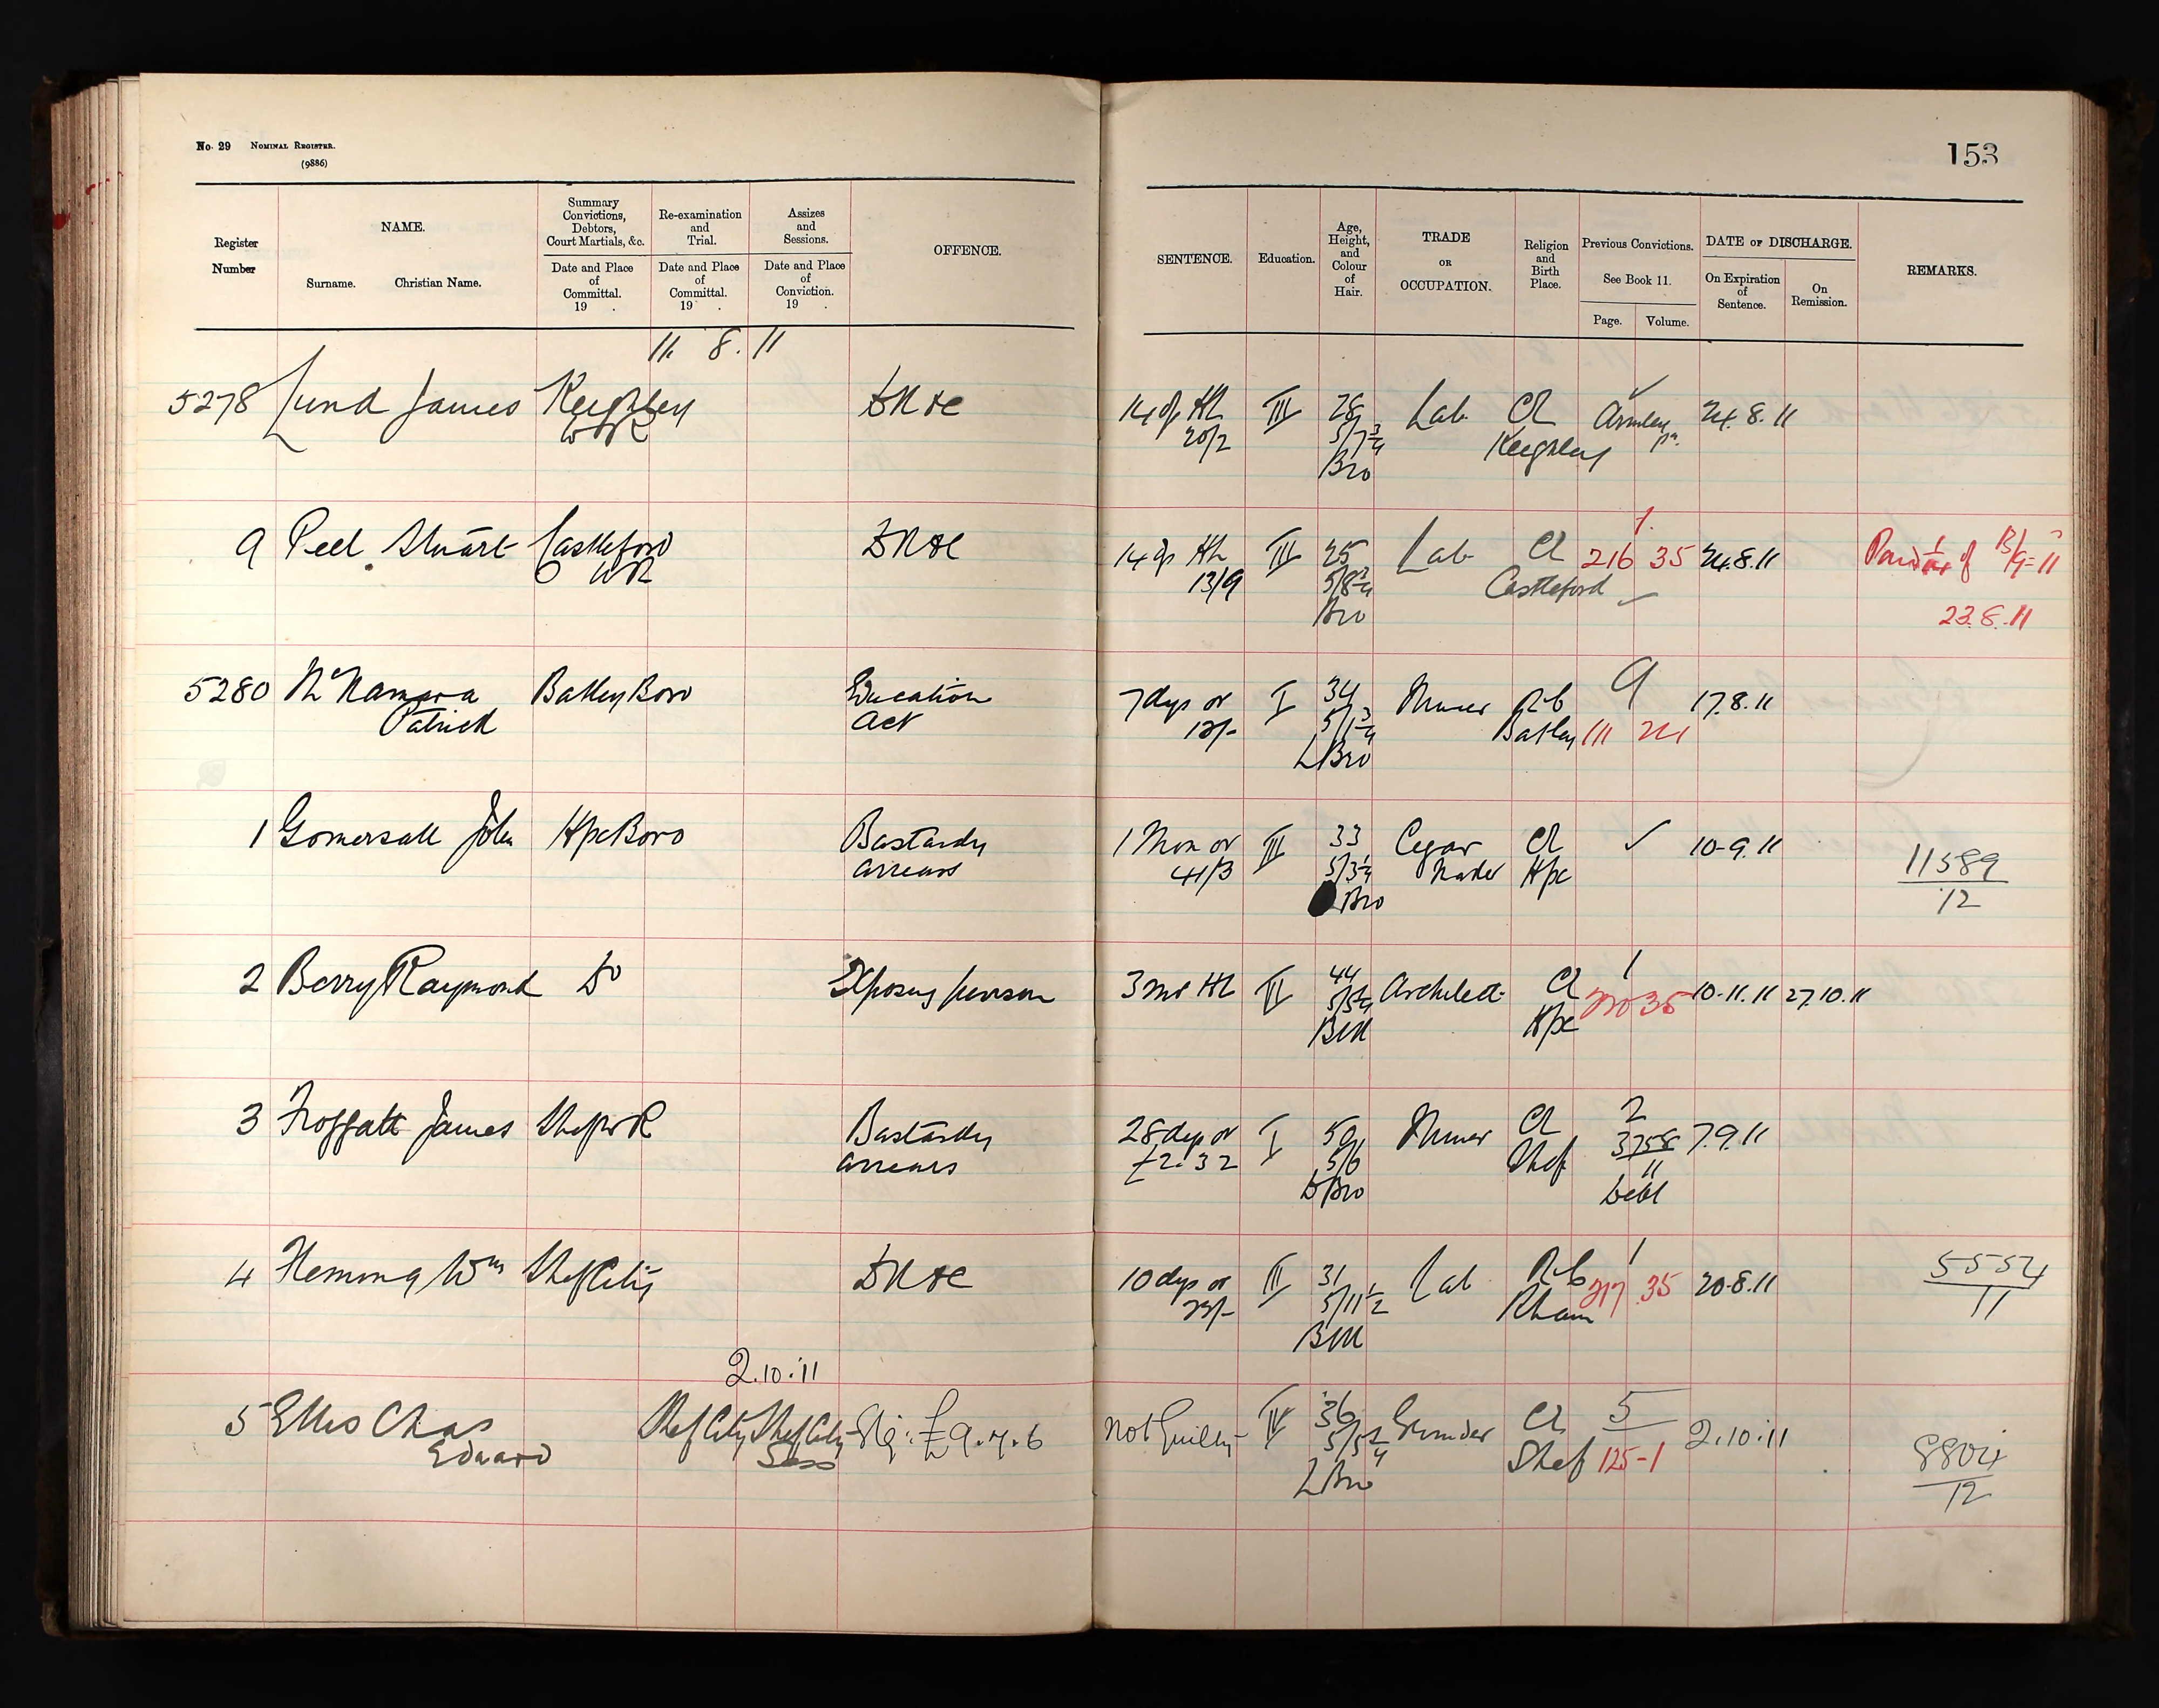 No. 29 NOMINAL REGISTER.
(9886)
153
Register Number
NAME.
Surname. Christian Name.
Summary Convictions, Debtors, Court Martials, &c.
Date and Place of Committal. 19 .
Re-examination and Trial.
Date and Place of Committal. 19 .
Assizes and Sessions.
Date and Place of Conviction. 19 .
OFFENCE.
SENTENCE.
Education.
Age, Height, and Colour of Hair.
TRADE OR OCCUPATION.
Religion and Birth Place.
Previous Convictions.
See Book 11.
Page. Volume.
DATE OF DISCHARGE.
On Expiration of Sentence.
On Remission.
REMARKS.
11. 8. 11
5278 Lund James Keighley DK &c 14 dys HL III 28 Lab Ch Armley 24.8.11
WR 20/2 5/7 3/4 Keighley
Bro
9 Peel Stuart Castleford DK &c 14 dys HL III 25 Lab Ch 1. 216 35 24.8.11
WR 13/9 5/8 Castleford 23.8.11
Bro
5280 McNamara Batley Boro Education 7 dys or I 34 Miner RC 9 17.8.11
Patrick Act 12/- 5/1 3/4 Batley 111 21
L Bro
1 Gomersall John Hx Boro Bastardy 1 Mon or III 33 Cigar Ch ✓ 10-9.11 11589
arrears 41/3 5/3 1/4 Maker 12
Bro
2 Berry Raymond Do Exposing person 3 ms HL II 44 Architect Ch 1 35 10-11.11 27.10.11
Blk
3 Froggatt James Shef WR Bastardy 28 dys or I 50 Miner Ch 2 7.9.11
arrears £2. 3 2 5/6 Shef 3758
D Bro 11
Debt
4 Fleming Wm Shef City DK &c 10 dys or III 31 Lab RC 1 20-8.11 5554
23/- 5/11 1/2 Rham 217 35 11
Blk
2.10.11
5 Ellis Chas Shef City Shef City £9.7.6 Not Guilty IV 36 Grinder Ch 5 2.10.11 8804
Edward Sess Shef 125-1 12
L Bro